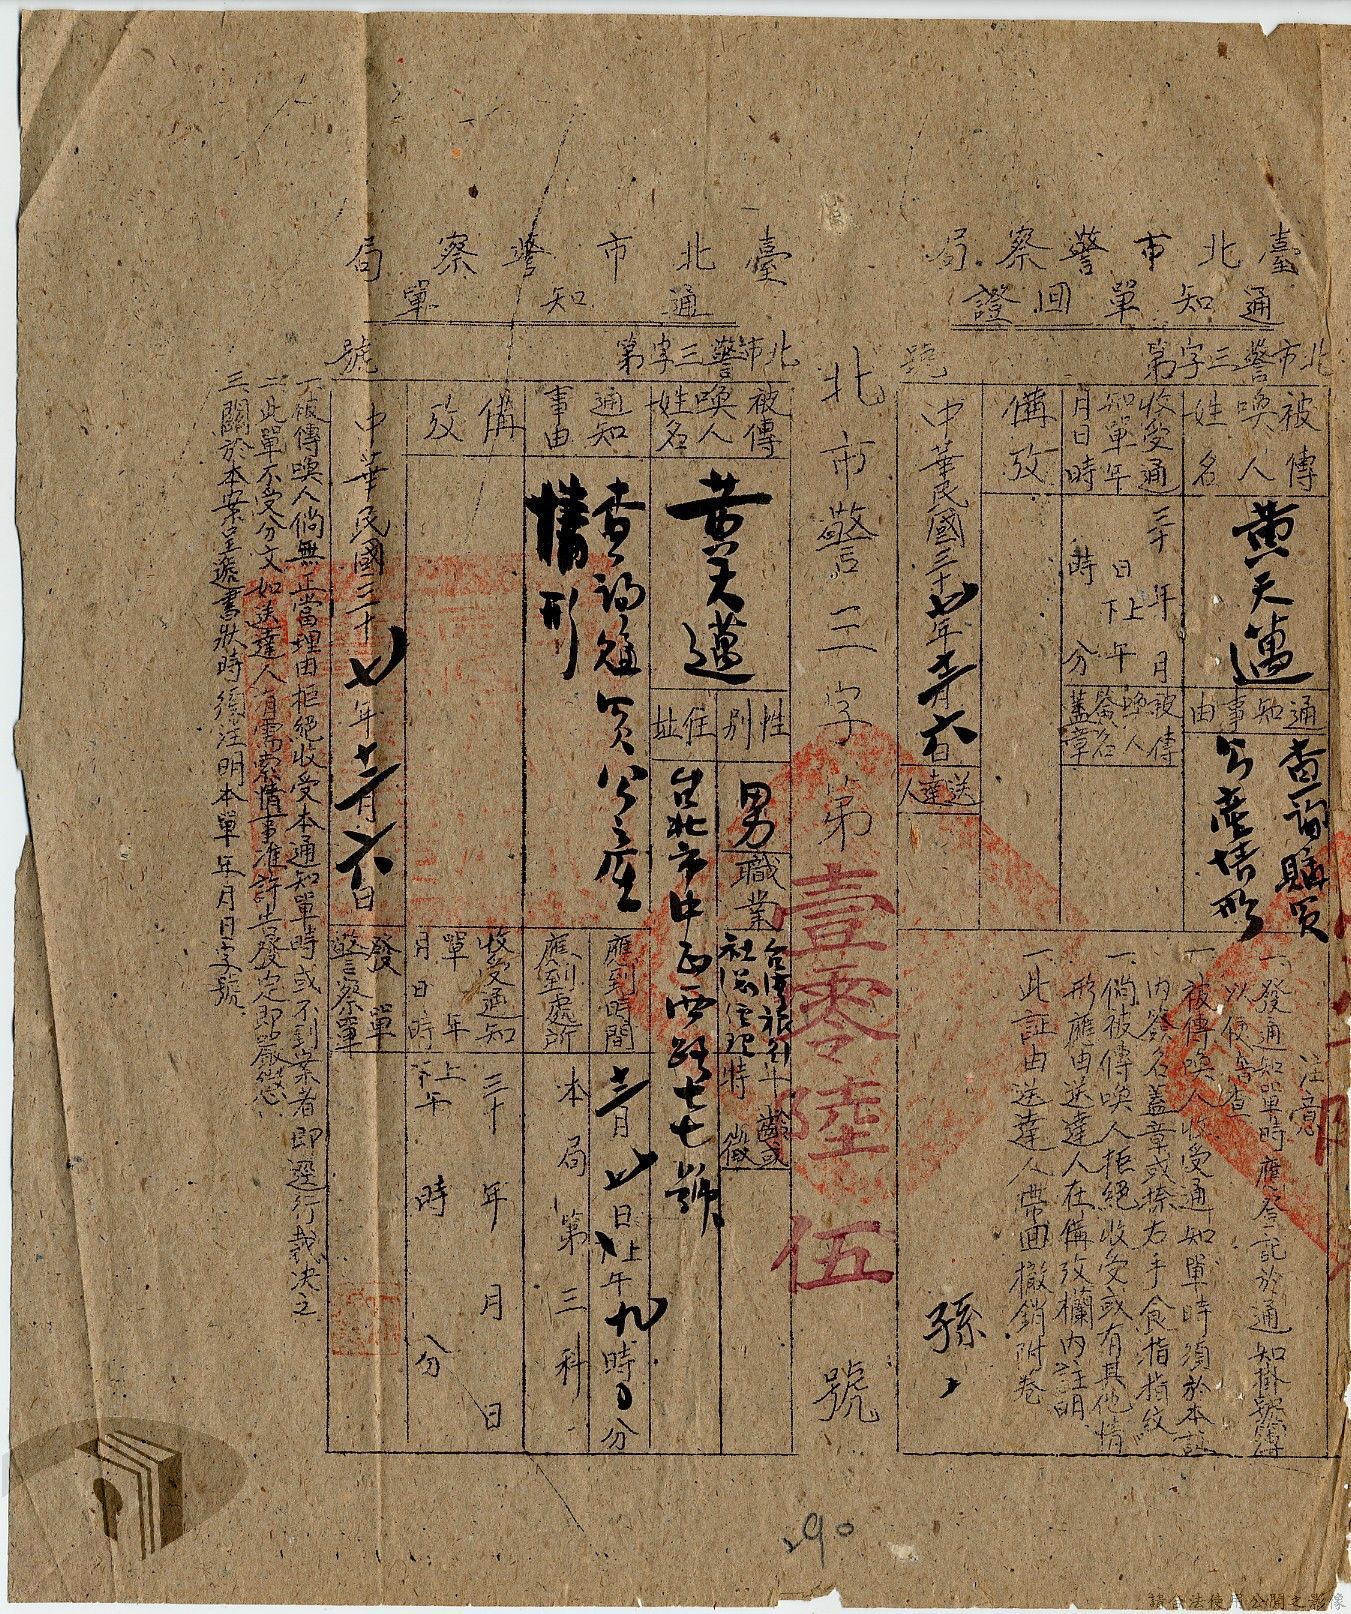 臺北市警察局
通知單回證
北市警三字第　號
被傳喚人姓名
黄天邁
通知事由
查詢購買
公產情形
收受通知單年月日時
三十年月
日上下午
時分
被傳喚人簽名蓋章
備攷
中華民國三十七年十一月六日
送達人
孫
注意
一、發通知單時應登記於通知掛號簿
以便審查
一、被傳喚人收受通知單時須於本証
內簽名蓋章或捺右手食指指紋
一、倘被傳喚人拒絕收受或有其他情
形應由送達人在備攷欄內註明
一、此証由送達人帶回撤銷附卷
北市警三字第壹零陸伍號
臺北市警察局
通知單
北市警三字第　號
被傳喚人姓名
黄天邁
性別
男
職業
台灣旅行
社總經理
年齡或特徵
住址
台北市中正西路七七號
通知事由
查詢購買公產
情形
應到時間
十一月廿日上午九時分
應到處所
本局第三科
備攷
收受通知單年月日時
三十年月日
上下午時分
中華民國三十七年十一月六日
發單警察署
一、被傳喚人倘無正當理由拒絕收受本通知單時或不到案者即逕行裁決之
二、此單不受分文如送達人有需索情事准許告發定即嚴懲
三、關於本案呈遞書狀時須注明本單年月日字號
290
請合法使用公開之影像